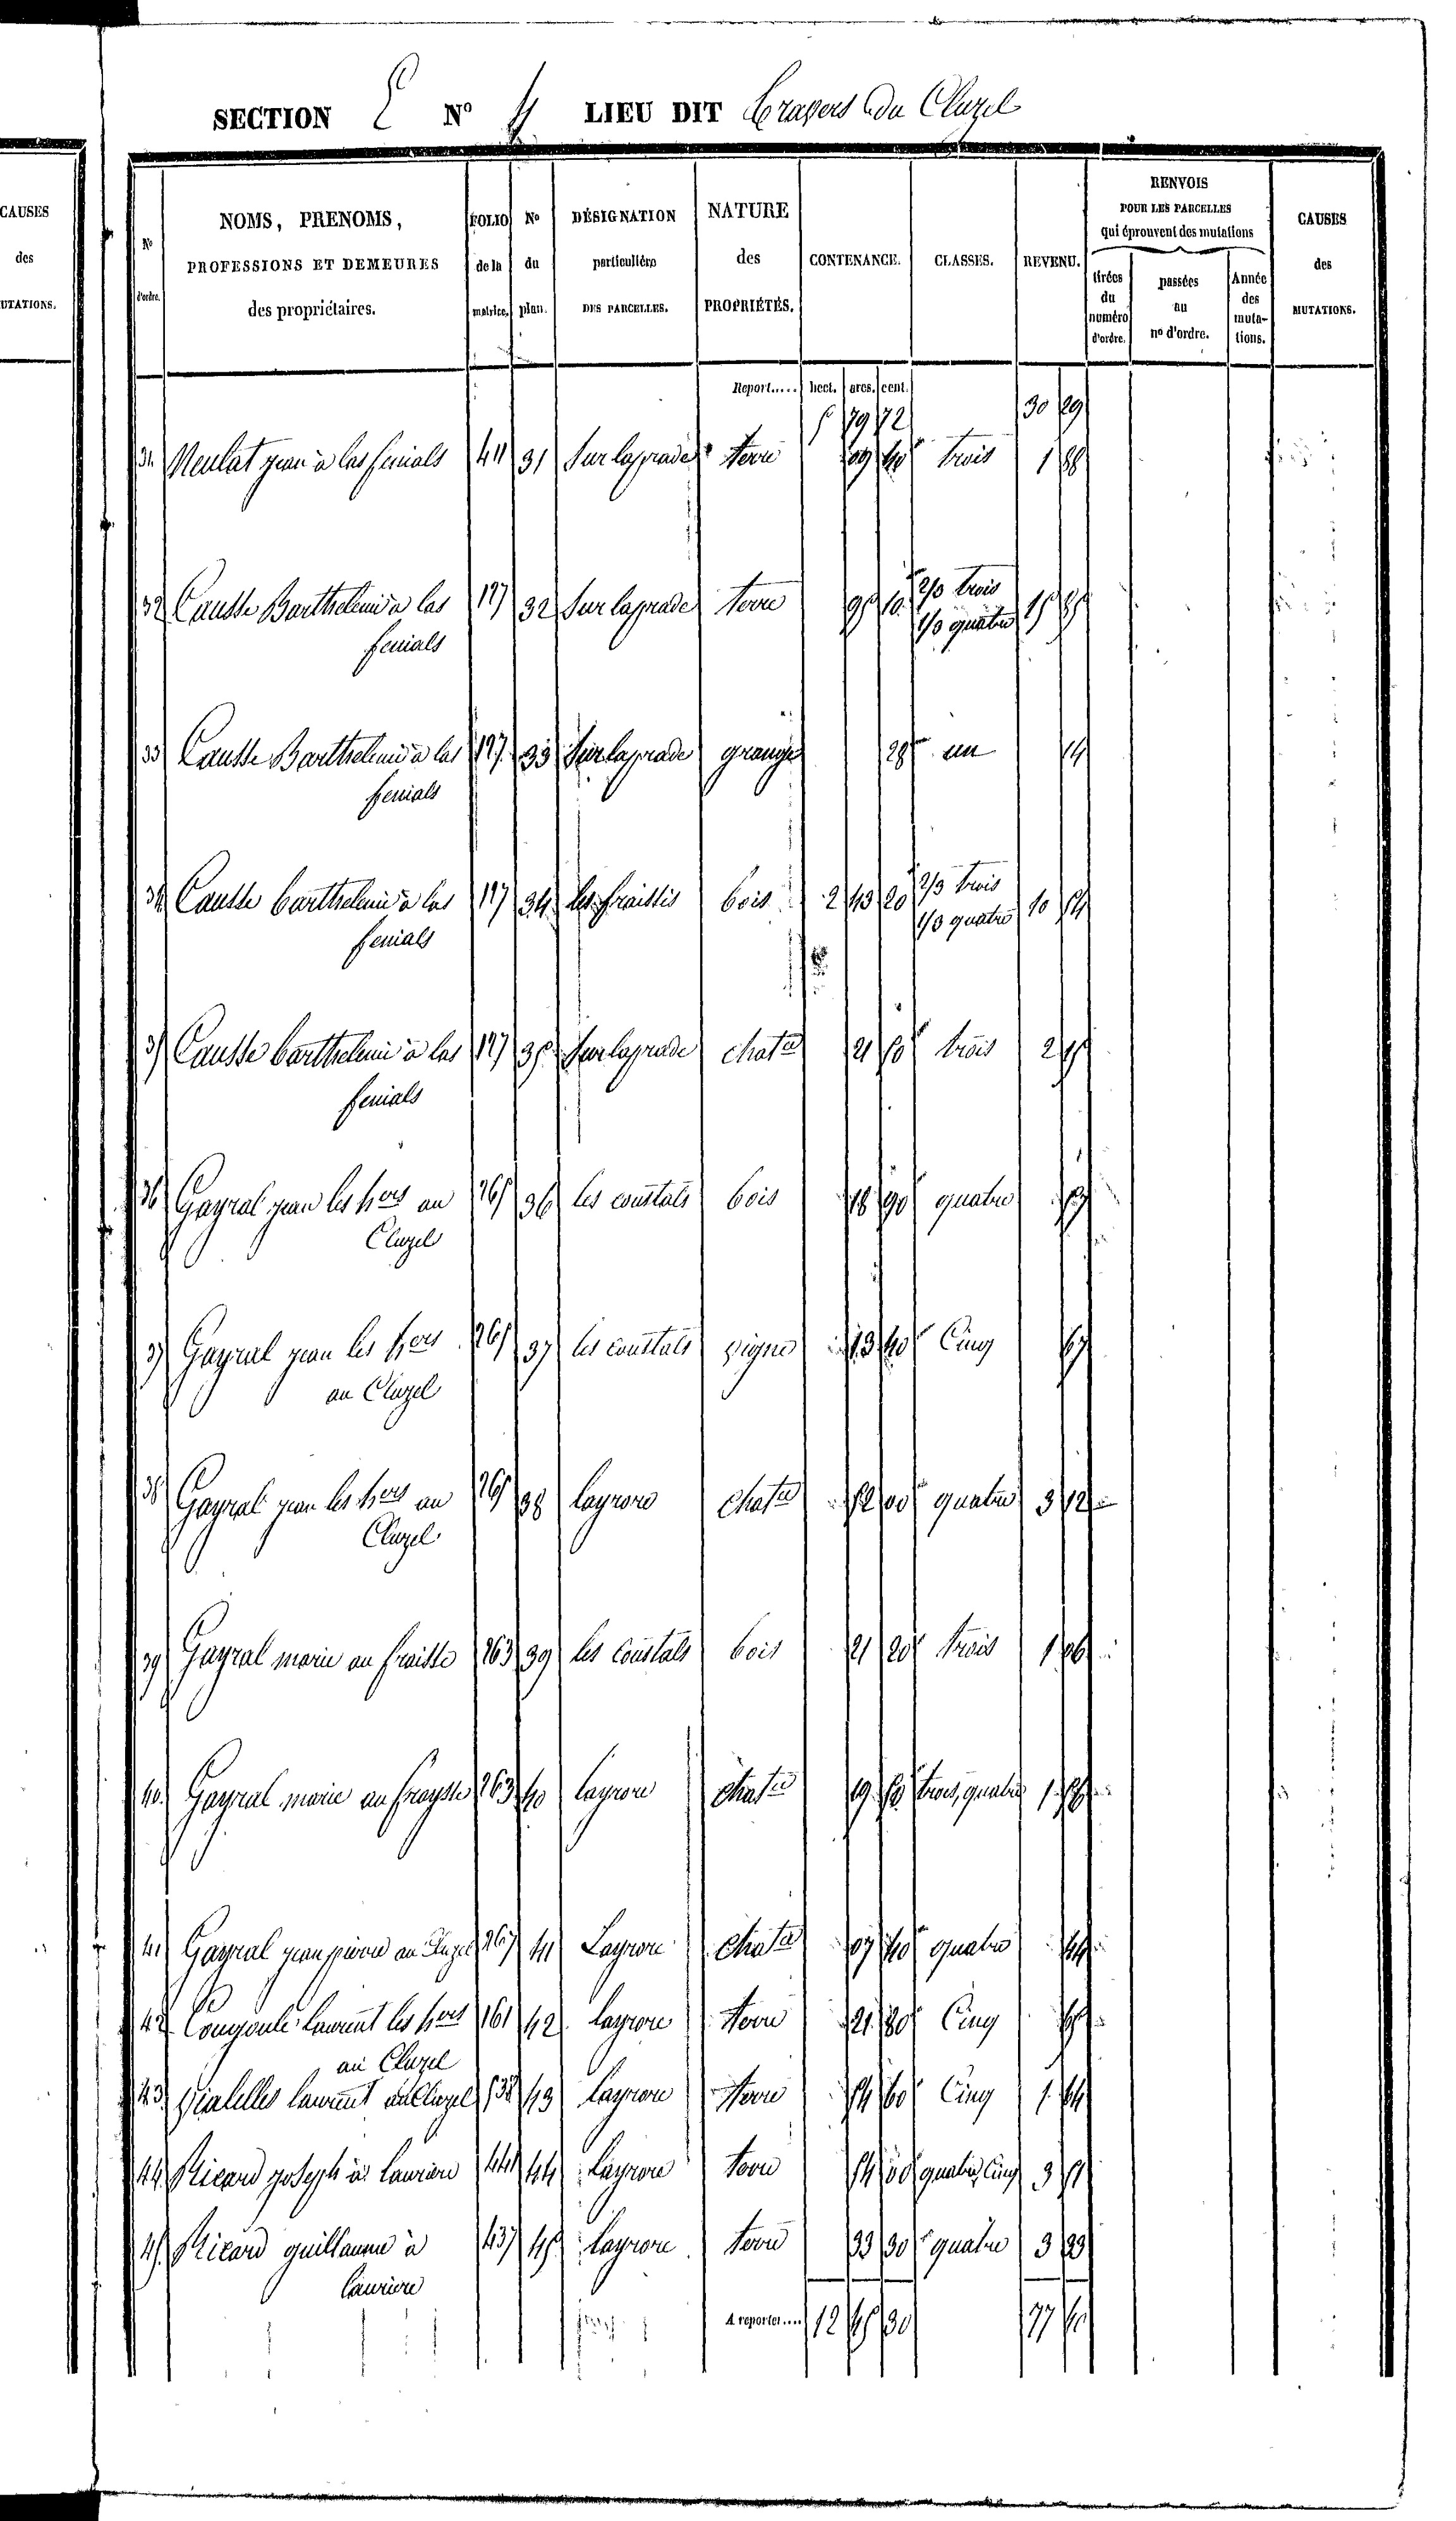 CAUSES
des
UTATIONS.
SECTION E N° 4 LIEU DIT Travers du Cluzel
N° d'ordre.
NOMS, PRENOMS,
PROFESSIONS ET DEMEURES
des propriétaires.
FOLIO de la matrice.
N° du plan.
DÉSIGNATION particulière DES PARCELLES.
NATURE des PROPRIÉTÉS.
CONTENANCE.
CLASSES.
REVENU.
RENVOIS
POUR LES PARCELLES
qui éprouvent des mutations
tirées du numéro d'ordre.
passées au n° d'ordre.
Année des muta-tions.
CAUSES des MUTATIONS.
Report..... hect. ares. cent.
5 79 72 30 29
31 Neulat jean à las fenials 411 31 Sur laprade terre 09 40 trois 1 88
32 Causse Barthelemi à las 127 32 Sur laprade terre 95 10 2/3 trois 15 85
fenials 1/3 quatre
33 Causse Barthelemi à las 127 33 Sur laprade grange 28 un 14
fenials
34 Causse barthelemi à las 127 34 les fraissis bois 2 43 20 2/3 trois 10 54
fenials 1/3 quatre
35 Causse barthelemi à las 127 35 Sur laprade chat.ie 21 50 trois 2 15
fenials
36 Gayral jean les h.ers au 265 36 les coustals bois 18 90 quatre 57
Cluzel
37 Gayral jean les h.ers 265 37 les coustals vigne 13 40 Cinq 67
au Cluzel
38 Gayral jean les h.ers au 265 38 layrore chat.ie 52 00 quatre 3 12
Cluzel
39 Gayral marie au fraisse 263 39 les coustals bois 21 20 trois 1 06
40 Gayral marie au fraysse 263 40 layrore chat.ie 19 50 trois, quatre 1 56
41 Gayral jean pierre au Cluzel 267 41 Layrore chat.ie 07 40 quatre 44
42 Cougoule laurent les h.ers 161 42 layrore terre 21 80 Cinq 65
au Cluzel
43 Vialelles laurent au Cluzel 538 43 layrore terre 54 60 Cinq 1 64
44 Ricard joseph à lauriere 441 44 layrore terre 54 00 quatre, Cinq 3 51
45 Ricard guillaume à 437 45 layrore terre 33 30 quatre 3 33
lauriere
A reporter.... 12 45 30 77 40